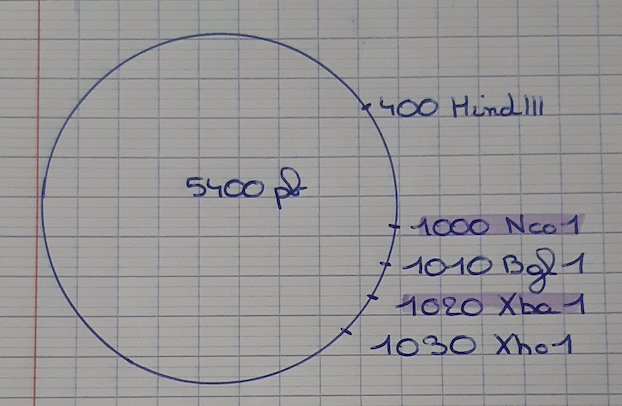 400 HindIII
5400 pb
1000 Nco1
1010 Bgl1
1020 Xba1
1030 Xho1